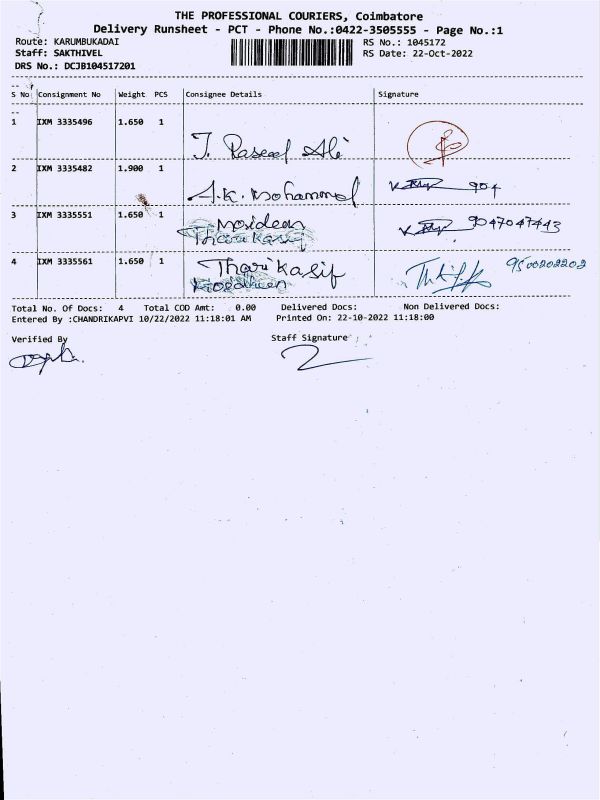 THE PROFESSIONAL COURIERS, Coimbatore
Delivery Runsheet - PCT - Phone No.:0422-3505555 - Page No.:1
Route: KARUMBUKADAI RS No.: 1045172
Staff: SAKTHIVEL RS Date: 22-Oct-2022
DRS No.: DCJB104517201
S No Consignment No Weight PCS Consignee Details Signature
1 IXM 3335496 1.650 1
J. Raseed Ali
2 IXM 3335482 1.900 1
A.K. Mohammed 904
3 IXM 3335551 1.650 1 Moideen 9047047443
Tharikasif
4 IXM 3335561 1.650 1 Tharikasif 9500202202
Total No. Of Docs: 4 Total COD Amt: 0.00 Delivered Docs: Non Delivered Docs:
Entered By :CHANDRIKAPVI 10/22/2022 11:18:01 AM Printed On: 22-10-2022 11:18:00
Verified By Staff Signature